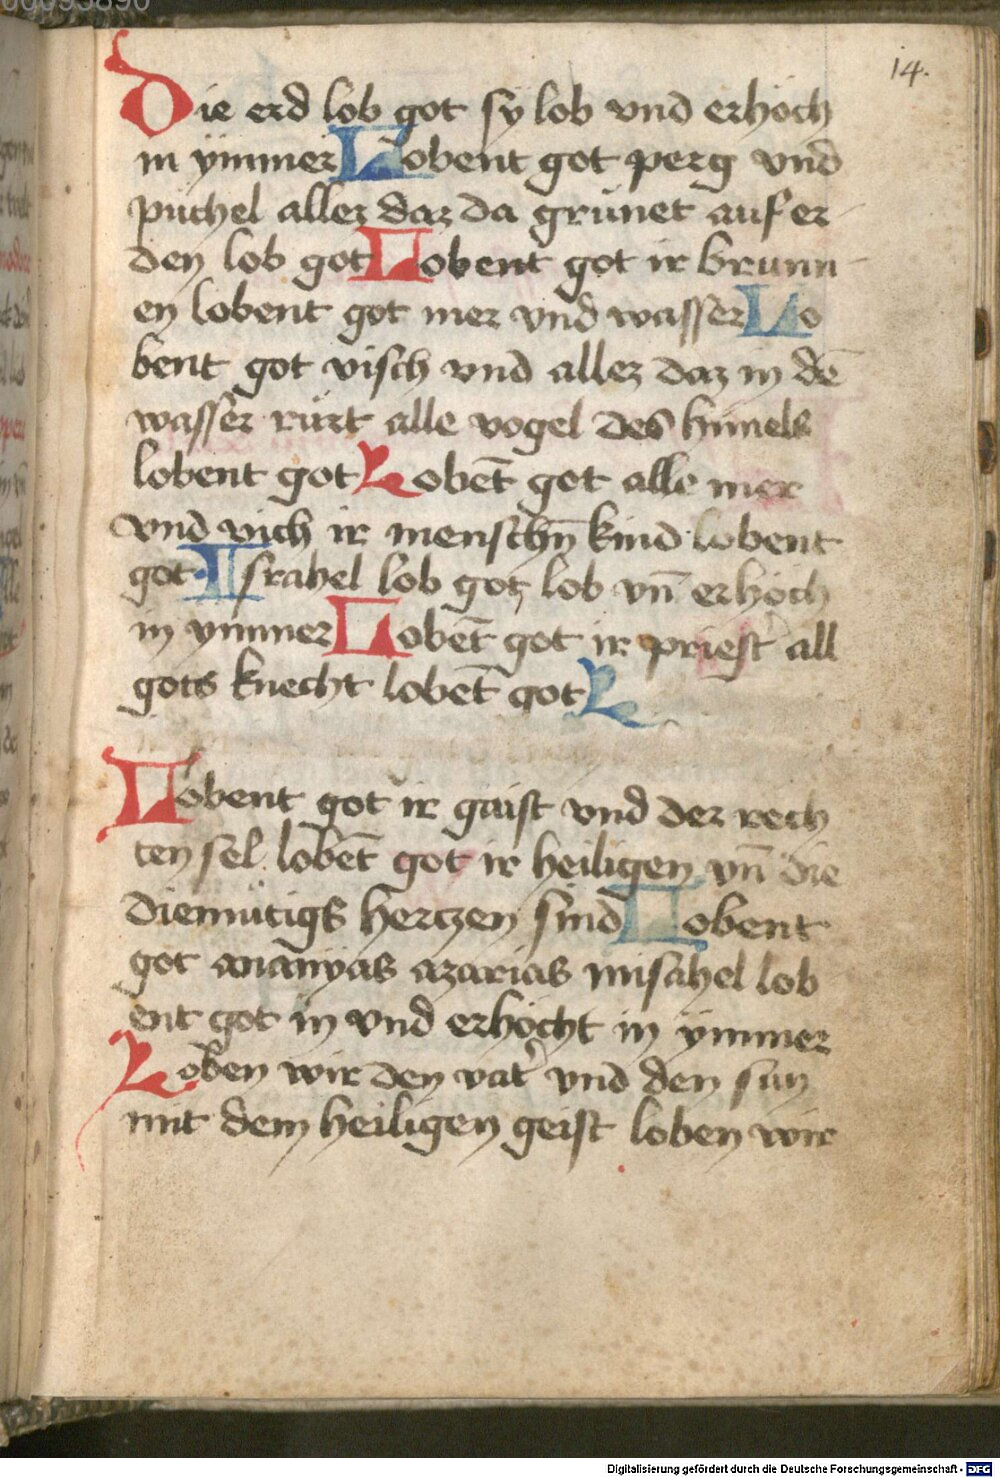 14.
Die erd lob got sy lob vnd erhöch
in ym̈mer Lobent got perg vnd
püchel allez daz da grünet auf er
den lob got Lobent got ir brunn
en lobent got mer vnd wasser Lo
bent got visch vnd allez daz in dē
wasser rürt alle vogel des himels
lobent got Lobēt got alle mer
vnd vich ir menschn̄ kind lobent
got Israhel lob got lob vn̄ erhöch
in ymmer Lobēt got ir priest' all
gots knecht lobēt got L
Lobent got ir gaist vnd der rech
ten sel lobēt got ir heiligen vn̄ die
diemütigs hertzen sind Lobent
got ananyas azarias misahel lob
ent got in vnd erhöcht in ÿmmer
Loben wir den vat' vnd den sun
mit dem heiligen geist loben wir
Digitalisierung gefördert durch die Deutsche Forschungsgemeinschaft - DFG